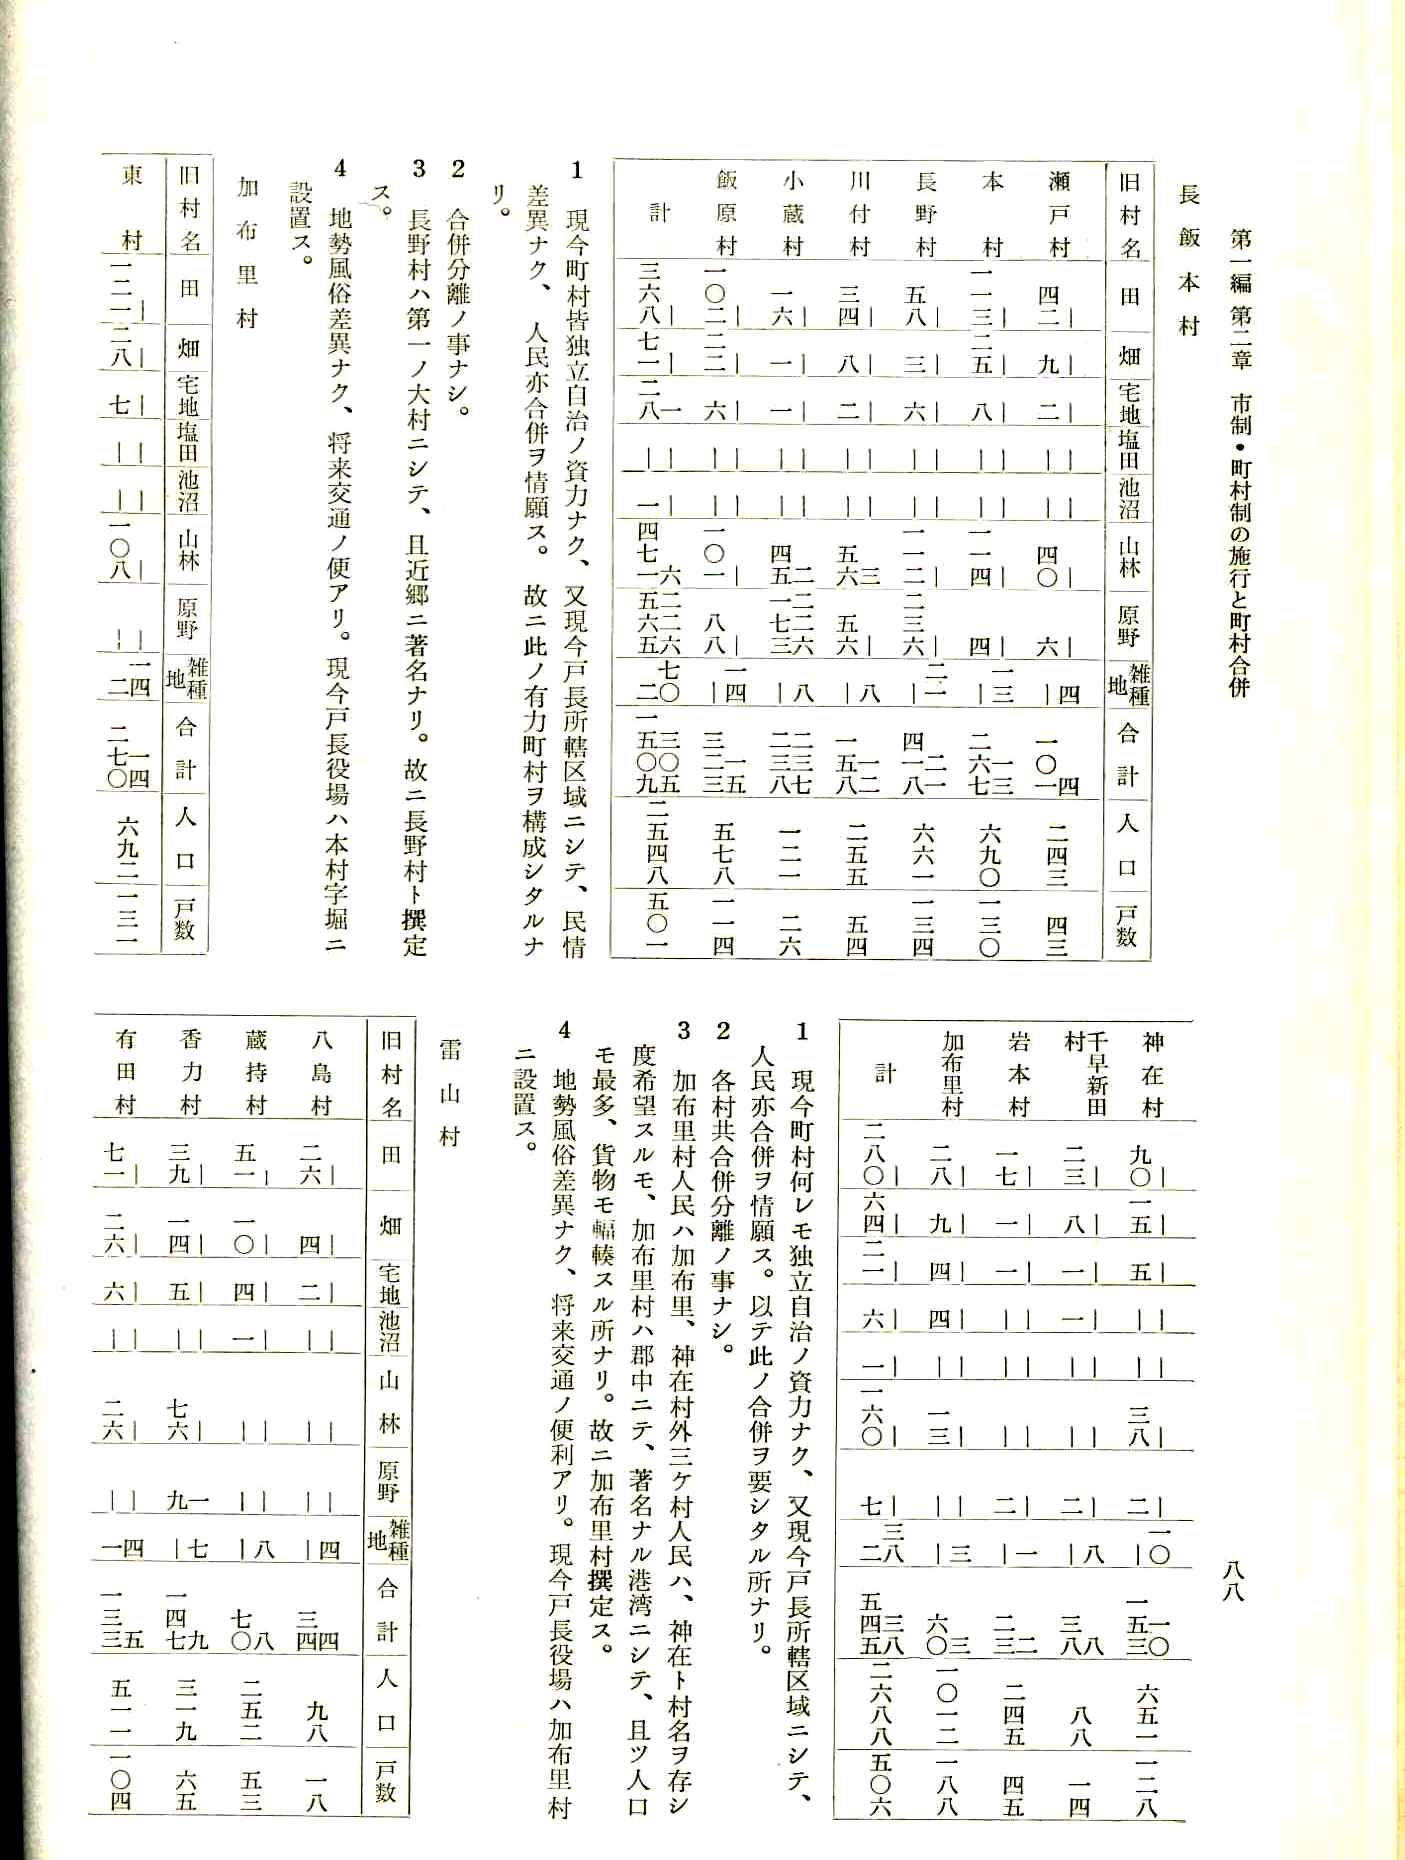 第一編 第二章 市制・町村制の施行と町村合併
八八
長飯本村
旧村名 田 畑 宅地 塩田 池沼 山林 原野 雑種地 合計 人口 戸数
瀬戸村 ｜ 四二 ｜ 九 ｜ 二 ｜ ｜ ｜ ｜ ｜ 四〇 ｜ 六 四 ｜ 四 一〇一 二四三 四三
本村 ｜ 一一三 ｜ 二五 ｜ 八 ｜ ｜ ｜ ｜ ｜ 一一四 ｜ 四 一三 ｜ 一三 二六七 六九〇 一三〇
長野村 ｜ 五八 ｜ 三 ｜ 六 ｜ ｜ ｜ ｜ ｜ 一一二 ｜ 二三六 二一 ｜ 二一 四一八 六六一 一三四
川付村 ｜ 三四 ｜ 八 ｜ 二 ｜ ｜ ｜ ｜ 三 五六 ｜ 五六 八 ｜ 一二 一五八 二五五 五四
小蔵村 ｜ 一六 ｜ 一 ｜ 一 ｜ ｜ ｜ ｜ 二 四五 二二六 一七三 八 ｜ 二三七 二三八 一二一 二六
飯原村 ｜ 一〇二 ｜ 二二 ｜ 六 ｜ ｜ ｜ ｜ ｜ 一〇一 ｜ 八八 一四 ｜ 一五 三二三 五七八 一一四
計 ｜ 三六八 ｜ 七一 一 二八 ｜ ｜ ｜ 一 六 四七一 二二六 五六五 七〇 二 三〇五 一五〇九 二五四八 五〇一
1 現今町村皆独立自治ノ資力ナク、又現今戸長所轄区域ニシテ、民情
差異ナク、人民亦合併ヲ情願ス。故ニ此ノ有力町村ヲ構成シタルナ
リ。
2 合併分離ノ事ナシ。
3 長野村ハ第一ノ大村ニシテ、且近郷ニ著名ナリ。故ニ長野村ト撰定
ス。
4 地勢風俗差異ナク、将来交通ノ便アリ。現今戸長役場ハ本村字堀ニ
設置ス。
加布里村
旧村名 田 畑 宅地 塩田 池沼 山林 原野 雑種地 合計 人口 戸数
東村 ｜ 一二一 ｜ 二八 ｜ 七 ｜ ｜ ｜ ｜ ｜ 一〇八 ｜ ｜ 一四 二 一四 二七〇 六九二 一三一
神在村 ｜ 九〇 ｜ 一五 ｜ 五 ｜ ｜ ｜ ｜ ｜ 三八 ｜ 二 一〇 ｜ 一〇 一五三 六五一 一二八
千早新田村 ｜ 二三 ｜ 八 ｜ 一 ｜ 一 ｜ ｜ ｜ ｜ ｜ 二 八 ｜ 八 三八 八八 一四
岩本村 ｜ 一七 ｜ 一 ｜ 一 ｜ ｜ ｜ ｜ ｜ ｜ ｜ 二 一 ｜ 二 二三 二四五 四五
加布里村 ｜ 二八 ｜ 九 ｜ 四 ｜ 四 ｜ ｜ ｜ 一三 ｜ ｜ 三 ｜ 三 六〇 一〇一二 一八八
計 ｜ 二八〇 ｜ 六四 ｜ 二一 ｜ 六 ｜ 一 ｜ 一六〇 ｜ 七 三八 二 三八 五四五 二六八八 五〇六
1 現今町村何レモ独立自治ノ資力ナク、又現今戸長所轄区域ニシテ、
人民亦合併ヲ情願ス。以テ此ノ合併ヲ要シタル所ナリ。
2 各村共合併分離ノ事ナシ。
3 加布里村人民ハ加布里、神在村外三ケ村人民ハ、神在ト村名ヲ存シ
度希望スルモ、加布里村ハ郡中ニテ、著名ナル港湾ニシテ、且ツ人口
モ最多、貨物モ輻輳スル所ナリ。故ニ加布里村撰定ス。
4 地勢風俗差異ナク、将来交通ノ便利アリ。現今戸長役場ハ加布里村
ニ設置ス。
雷山村
旧村名 田 畑 宅地 池沼 山林 原野 雑種地 合計 人口 戸数
八島村 ｜ 二六 ｜ 四 ｜ 二 ｜ ｜ ｜ ｜ ｜ ｜ 四 ｜ 四 三四 九八 一八
蔵持村 ｜ 五一 ｜ 一〇 ｜ 四 ｜ 一 ｜ ｜ ｜ ｜ 八 ｜ 八 七〇 二五二 五三
香力村 ｜ 三九 ｜ 一四 ｜ 五 ｜ ｜ ｜ 七六 一 九 七 ｜ 九 一四七 三一九 六五
有田村 ｜ 七一 ｜ 二六 ｜ 六 ｜ ｜ ｜ 二六 ｜ ｜ 四 一 五 一三三 五一一 一〇四